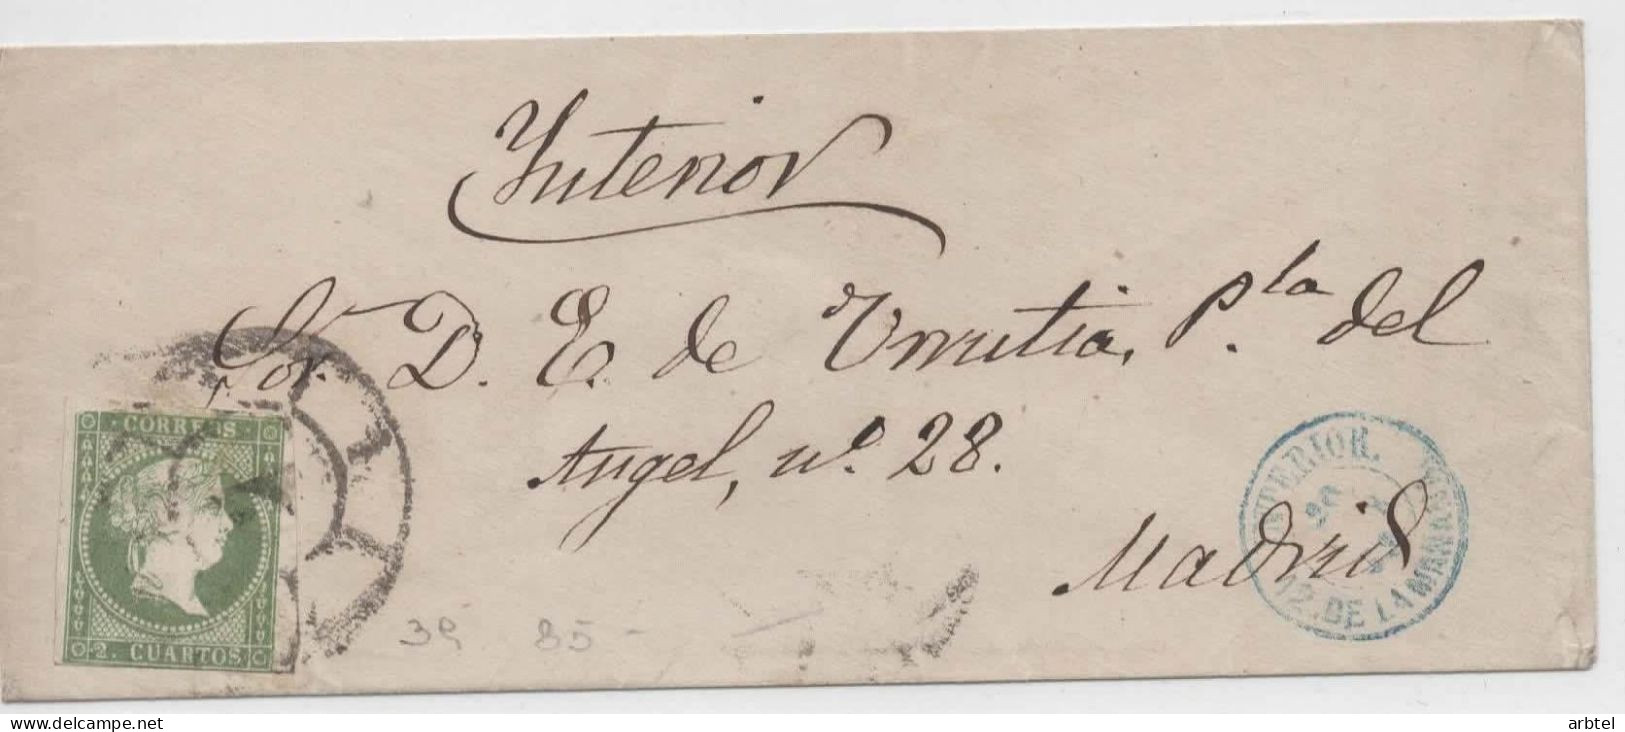 Interior
Sor. D. E. de Urrutia, P.la del
Angel, nº. 28.
Madrid
CORREOS
2. CUARTOS
INTERIOR.
12. DE LA MAÑANA
39 85 -
www.delcampe.net
arbtel